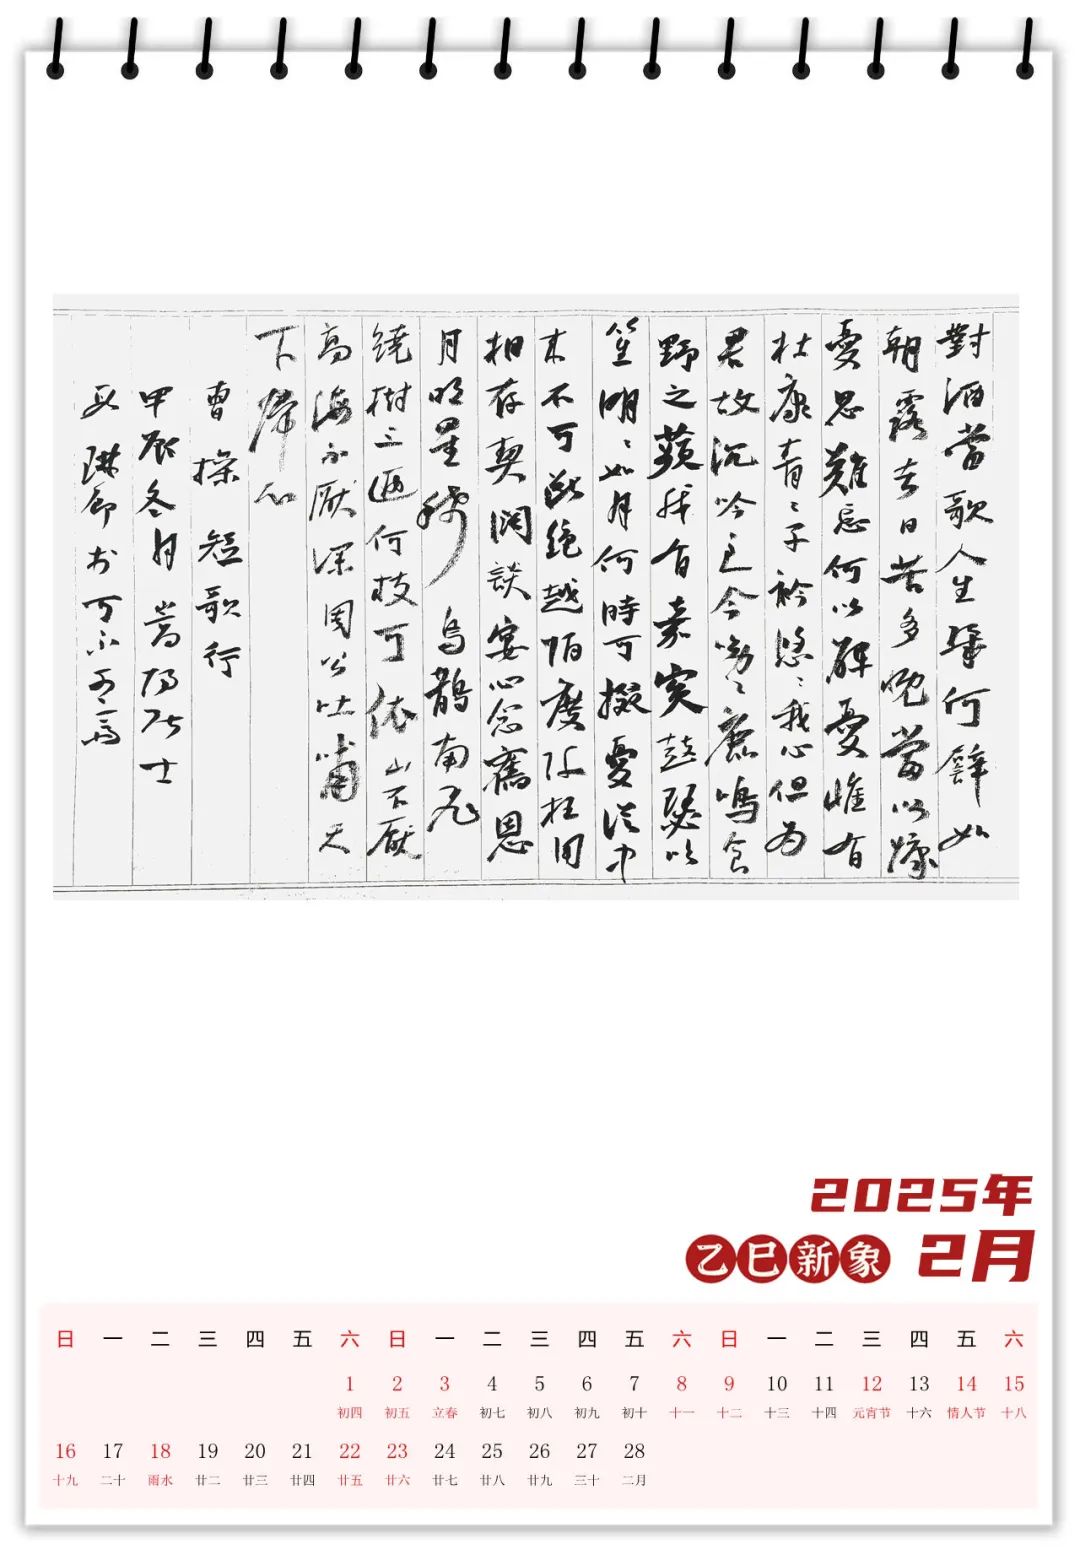 對酒當歌人生幾何譬如
朝露去日苦多慨當以慷
憂思難忘何以解憂惟有
杜康青〻子衿悠〻我心但為
君故沉吟至今呦〻鹿鳴食
野之蘋我有嘉賓鼓瑟吹
笙明〻如月何時可掇憂從中
來不可斷絕越陌度阡枉用
相存契闊談宴心念舊恩
月明星稀烏鵲南飛
繞樹三匝何枝可依山不厭
高海不厭深周公吐哺天
下歸心
曹操 短歌行
甲辰冬月嵩陽居士
2025年
乙巳新象 2月
日 一 二 三 四 五 六 日 一 二 三 四 五 六 日 一 二 三 四 五 六
1 2 3 4 5 6 7 8 9 10 11 12 13 14 15
初四 初五 立春 初七 初八 初九 初十 十一 十二 十三 十四 元宵节 十六 情人节 十八
16 17 18 19 20 21 22 23 24 25 26 27 28
十九 二十 雨水 廿二 廿三 廿四 廿五 廿六 廿七 廿八 廿九 三十 二月